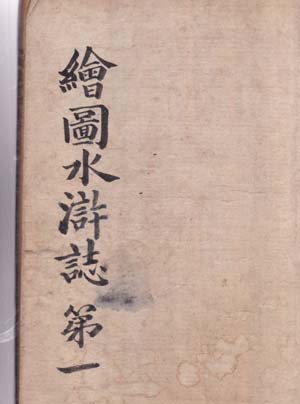 繪圖水滸誌 第一